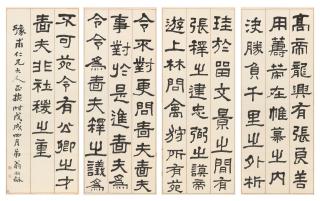 高帝龍興有張良善
用籌策在帷幕之
決勝負千里之外析
珪於留文景之間有
張釋之建忠弼之謨帝
遊上林問禽狩所有苑
令不對更問嗇夫嗇夫
事對於是進嗇夫為
令令為嗇夫釋之議為
不可苑令有公卿之才
嗇夫非社稷之重
仁兄大人正 時戊戌四月弟